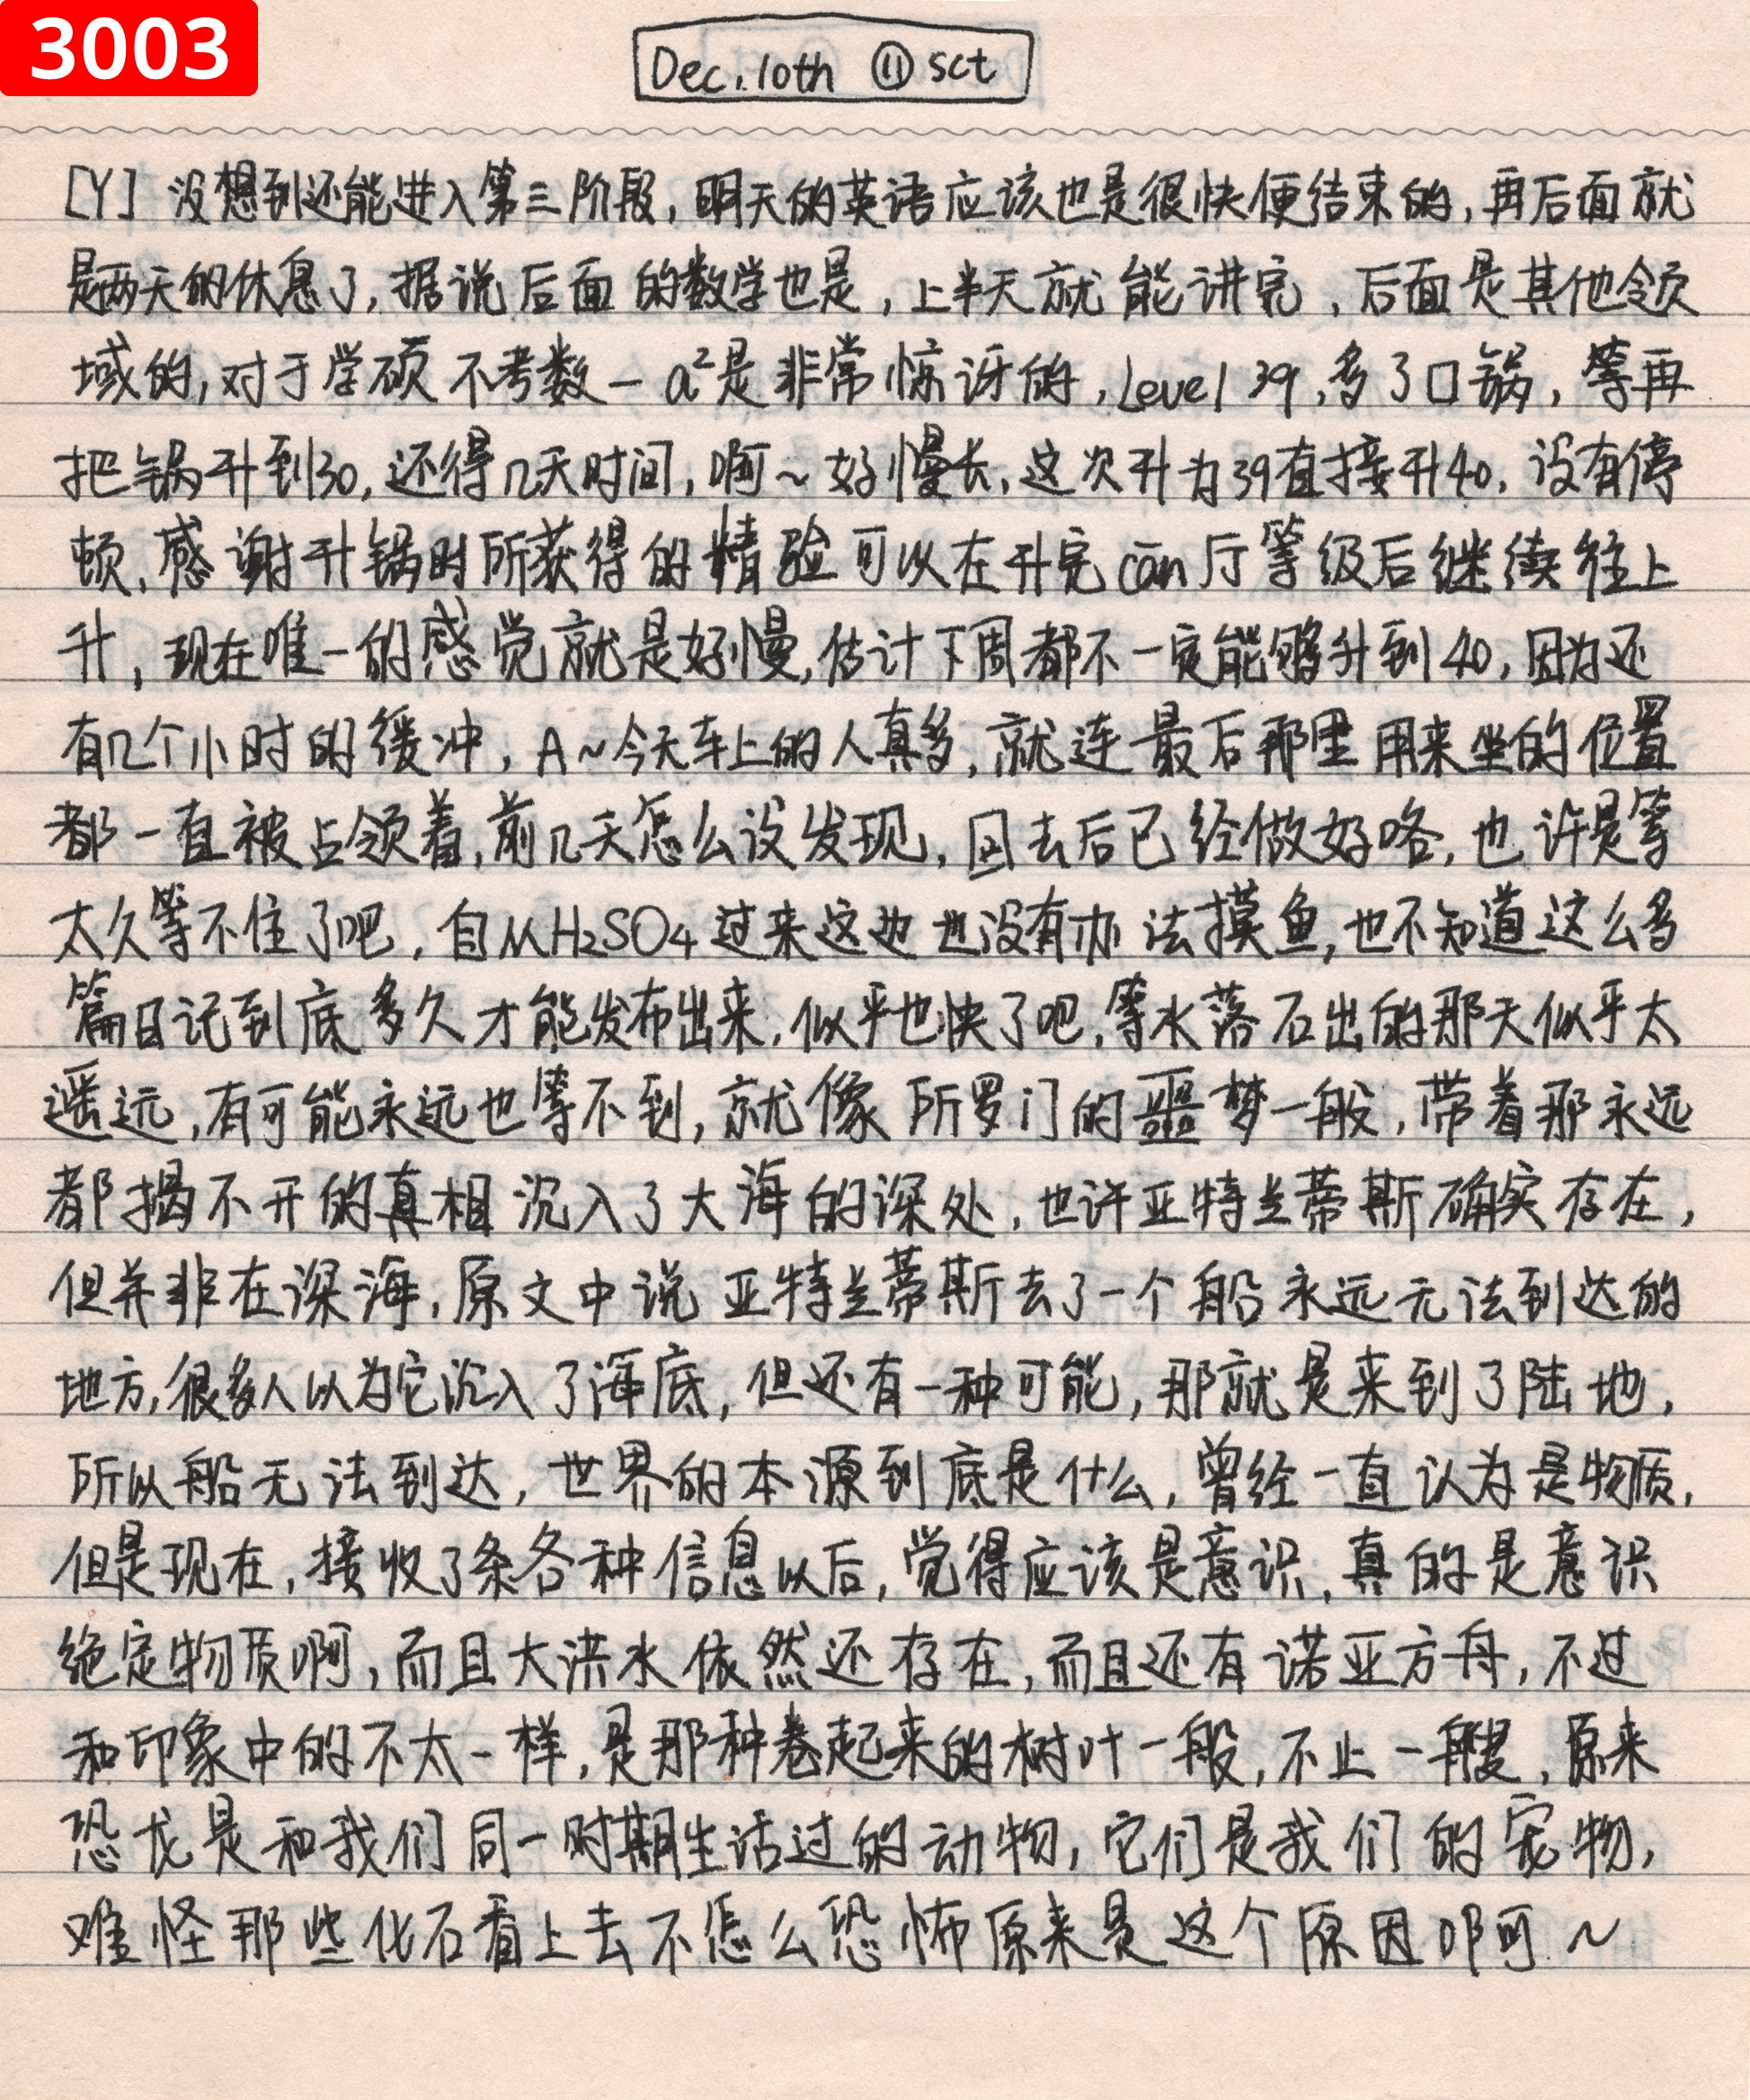 3003
Dec.10th ⑪ sct
[Y] 没想到还能进入第三阶段,明天的英语应该也是很快便结束的,再后面就
是两天的休息了,据说后面的数学也是,上半天就能讲完,后面是其他领
域的,对于学硕不考数一a²是非常惊讶的,Level 39,多了口锅,等再
把锅升到30,还得几天时间,啊~好慢长,这次升为39直接升40,没有停
顿,感谢升锅时所获得的精验可以在升完cān厅等级后继续往上
升,现在唯一的感觉就是好慢,估计下周都不一定能够升到40,因为还
有几个小时的缓冲,A~今天车上的人真多,就连最后那里用来坐的位置
都一直被占领着,前几天怎么没发现,回去后已经做好咯,也许是等
太久等不住了吧,自从H₂SO₄过来这边也没有办法摸鱼,也不知道这么多
篇日记到底多久才能发布出来,似乎也快了吧,等水落石出的那天似乎太
遥远,有可能永远也等不到,就像所罗门的噩梦一般,带着那永远
都揭不开的真相沉入了大海的深处,也许亚特兰蒂斯确实存在,
但并非在深海,原文中说亚特兰蒂斯去了一个船永远无法到达的
地方,很多人以为它沉入了海底,但还有一种可能,那就是来到了陆地,
所以船无法到达,世界的本源到底是什么,曾经一直认为是物质,
但是现在,接收了条各种信息以后,觉得应该是意识,真的是意识
绝定物质啊,而且大洪水依然还存在,而且还有诺亚方舟,不过
和印象中的不太一样,是那种卷起来的树叶一般,不止一艘,原来
恐龙是和我们同一时期生活过的动物,它们是我们的宠物,
难怪那些化石看上去不怎么恐怖原来是这个原因啊~